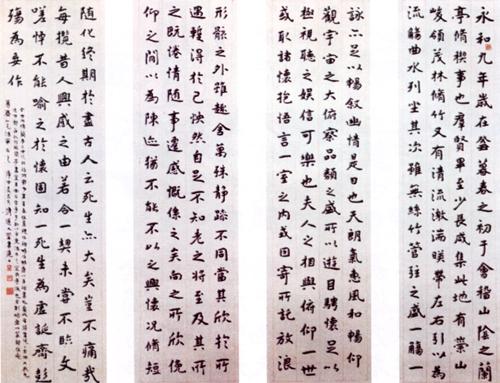 永和九年歲在癸丑暮春之初于會稽山陰之蘭
亭脩稧事也羣賢畢至少長咸集此地有崇山
峻領茂林脩竹又有清流激湍暎帶左右引以
流觴曲水列坐其次雖無絲竹管弦之盛一觴一
詠亦足以暢敘幽情是日也天朗氣惠風和暢仰
觀宇宙之大俯察品類之盛所以遊目騁懷足以
極視聽之娛信可樂也夫人之相與俯仰一世
或取諸懷抱悟言一室之內或因寄所託放浪
形骸之外雖趣舍萬殊靜躁不同當其欣於所
遇輙得於己怏然自足不知老之將至及其所
之既惓情隨事遷感慨係之矣向之所欣俛
仰之間以為陳迹猶不能不以之興懷況脩短
隨化終期於盡古人云死生亦大矣豈不痛哉
每攬昔人興感之由若合一契未嘗不臨文
嗟悼不能喻之於懷固知一死生為虛誕齊彭
殤為妄作